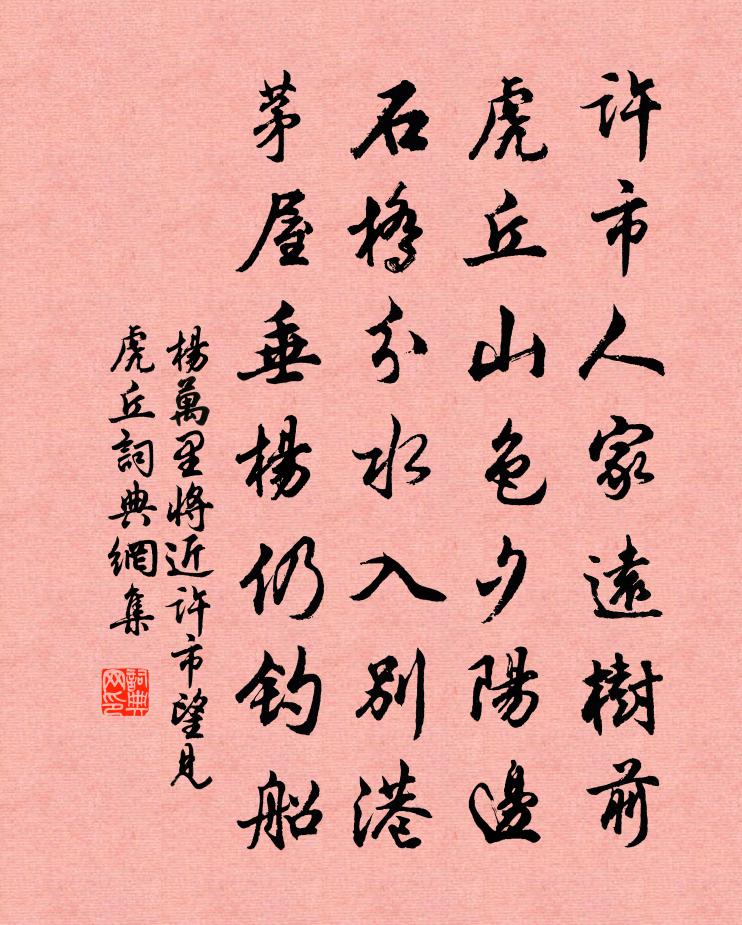 許市人家遠樹前
虎丘山色夕陽邊
石橋分水入別港
茅屋垂楊仍釣船
楊萬里將近許市望見
虎丘詞典網集
詞典
网印